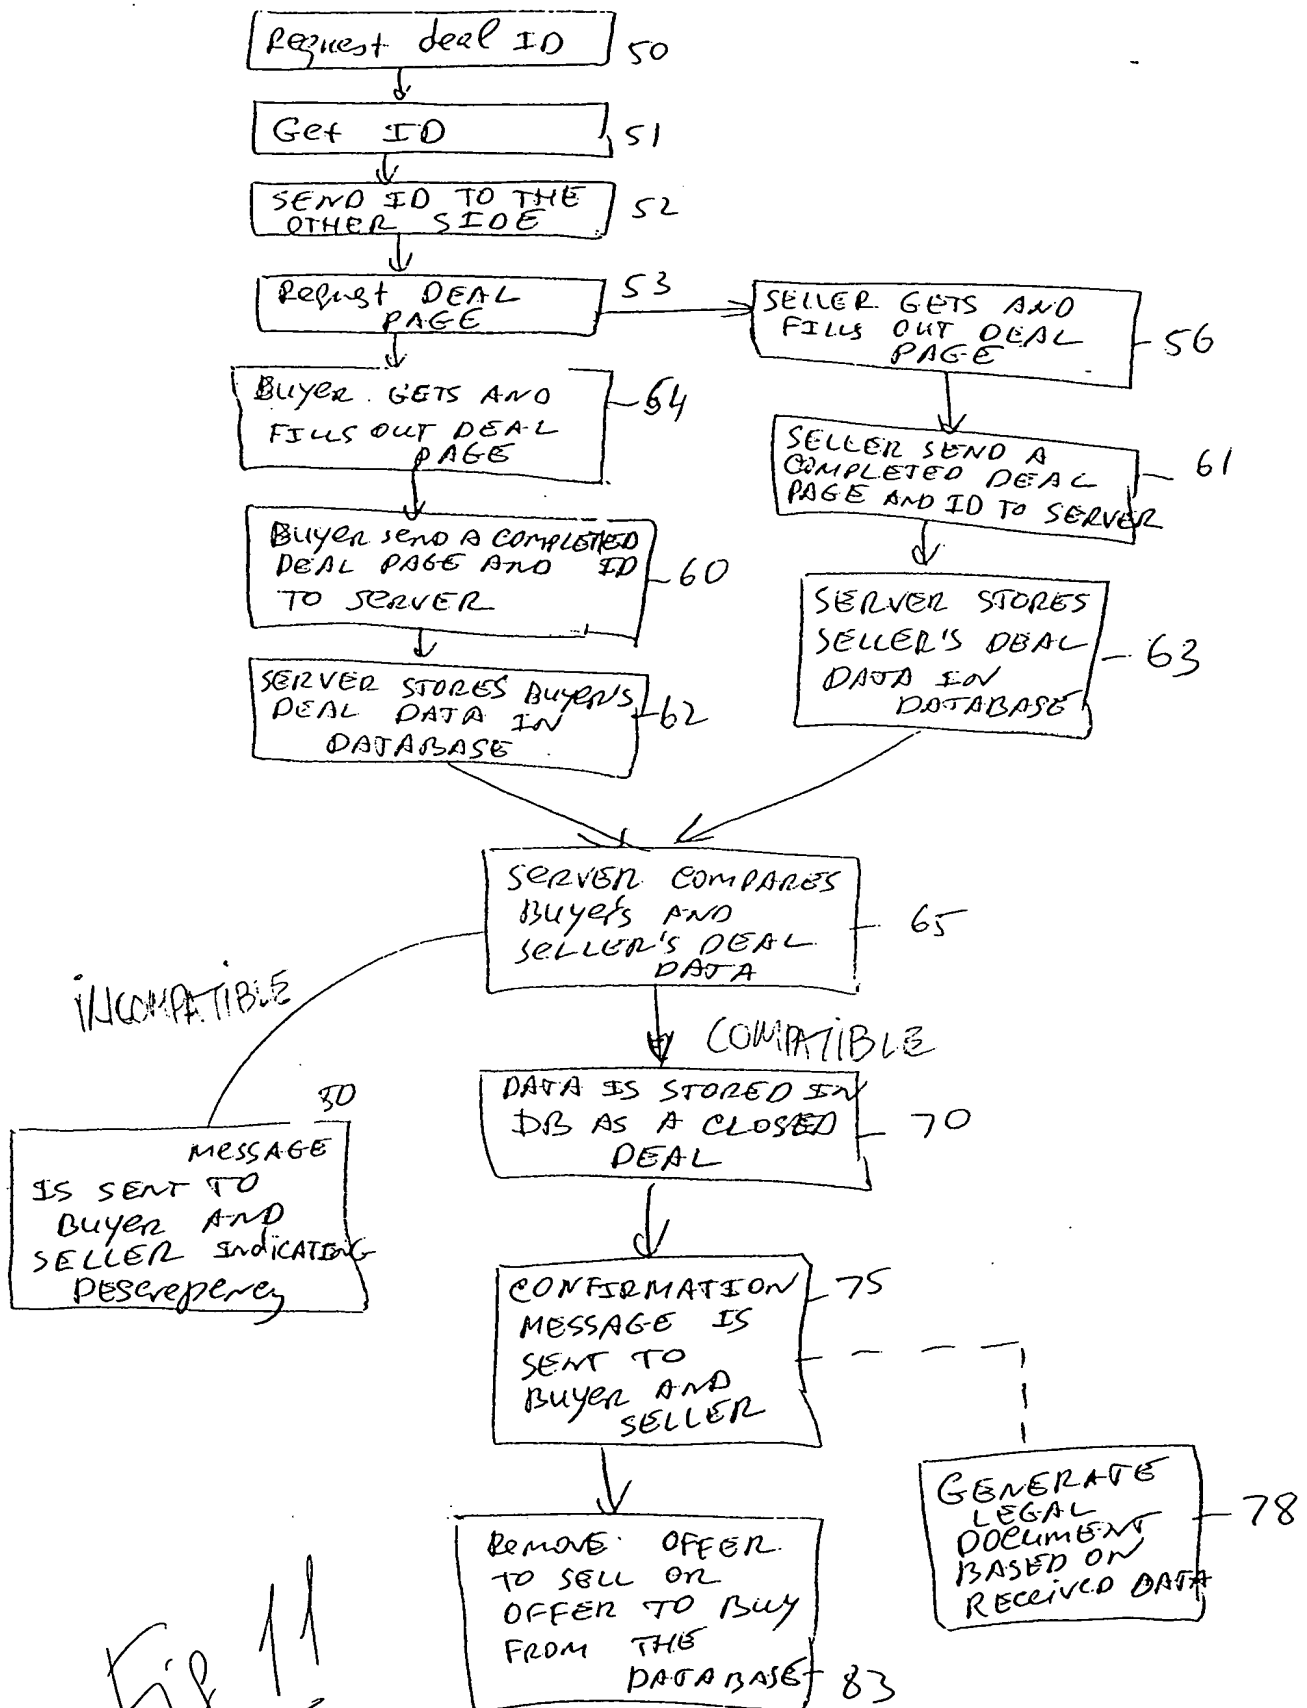 Request deal ID
50
Get ID
51
SEND ID TO THE
OTHER SIDE
52
Request DEAL
PAGE
53
SELLER GETS AND
FILLS OUT DEAL
PAGE
56
BUYER GETS AND
FILLS OUT DEAL
PAGE
54
SELLER SEND A
COMPLETED DEAL
PAGE AND ID TO SERVER
61
BUYER SEND A COMPLETED
DEAL PAGE AND ID
TO SERVER
60
SERVER STORES
SELLER'S DEAL
DATA IN
DATABASE
63
SERVER STORES BUYER'S
DEAL DATA IN
DATABASE
62
SERVER COMPARES
BUYER'S AND
SELLER'S DEAL
DATA
65
INCOMPATIBLE
COMPATIBLE
80
MESSAGE
IS SENT TO
BUYER AND
SELLER INDICATING
DESCREPENCY
DATA IS STORED IN
DB AS A CLOSED
DEAL
70
CONFIRMATION
MESSAGE IS
SENT TO
BUYER AND
SELLER
75
GENERATE
LEGAL
DOCUMENT
BASED ON
RECEIVED DATA
78
REMOVE OFFER
TO SELL OR
OFFER TO BUY
FROM THE
DATABASE
83
Fig 11